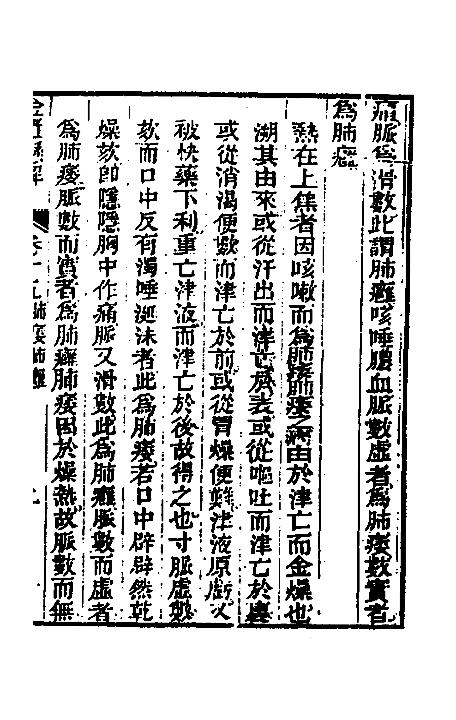 痛脈反滑數此謂肺癰咳唾膿血脈數虛者為肺痿數實者
為肺癰
熱在上焦者因咳嗽而為肺痿肺痿之病由於津亡而金燥也
溯其由來或從汗出而津亡於表或從嘔吐而津亡於裏
或從消渴便數而津亡於前或從胃燥便難津液原虧又
被快藥下利重亡津液而津亡於後故得之也寸脈虛數
欬而口中反有濁唾涎沫者此為肺痿若口中辟辟然乾
燥欬即隱隱胸中作痛脈又滑數此為肺癰脈數而虛者
為肺痿脈數而實者為肺癰肺痿因於燥熱故脈數而無
卷十五肺痿肺癰